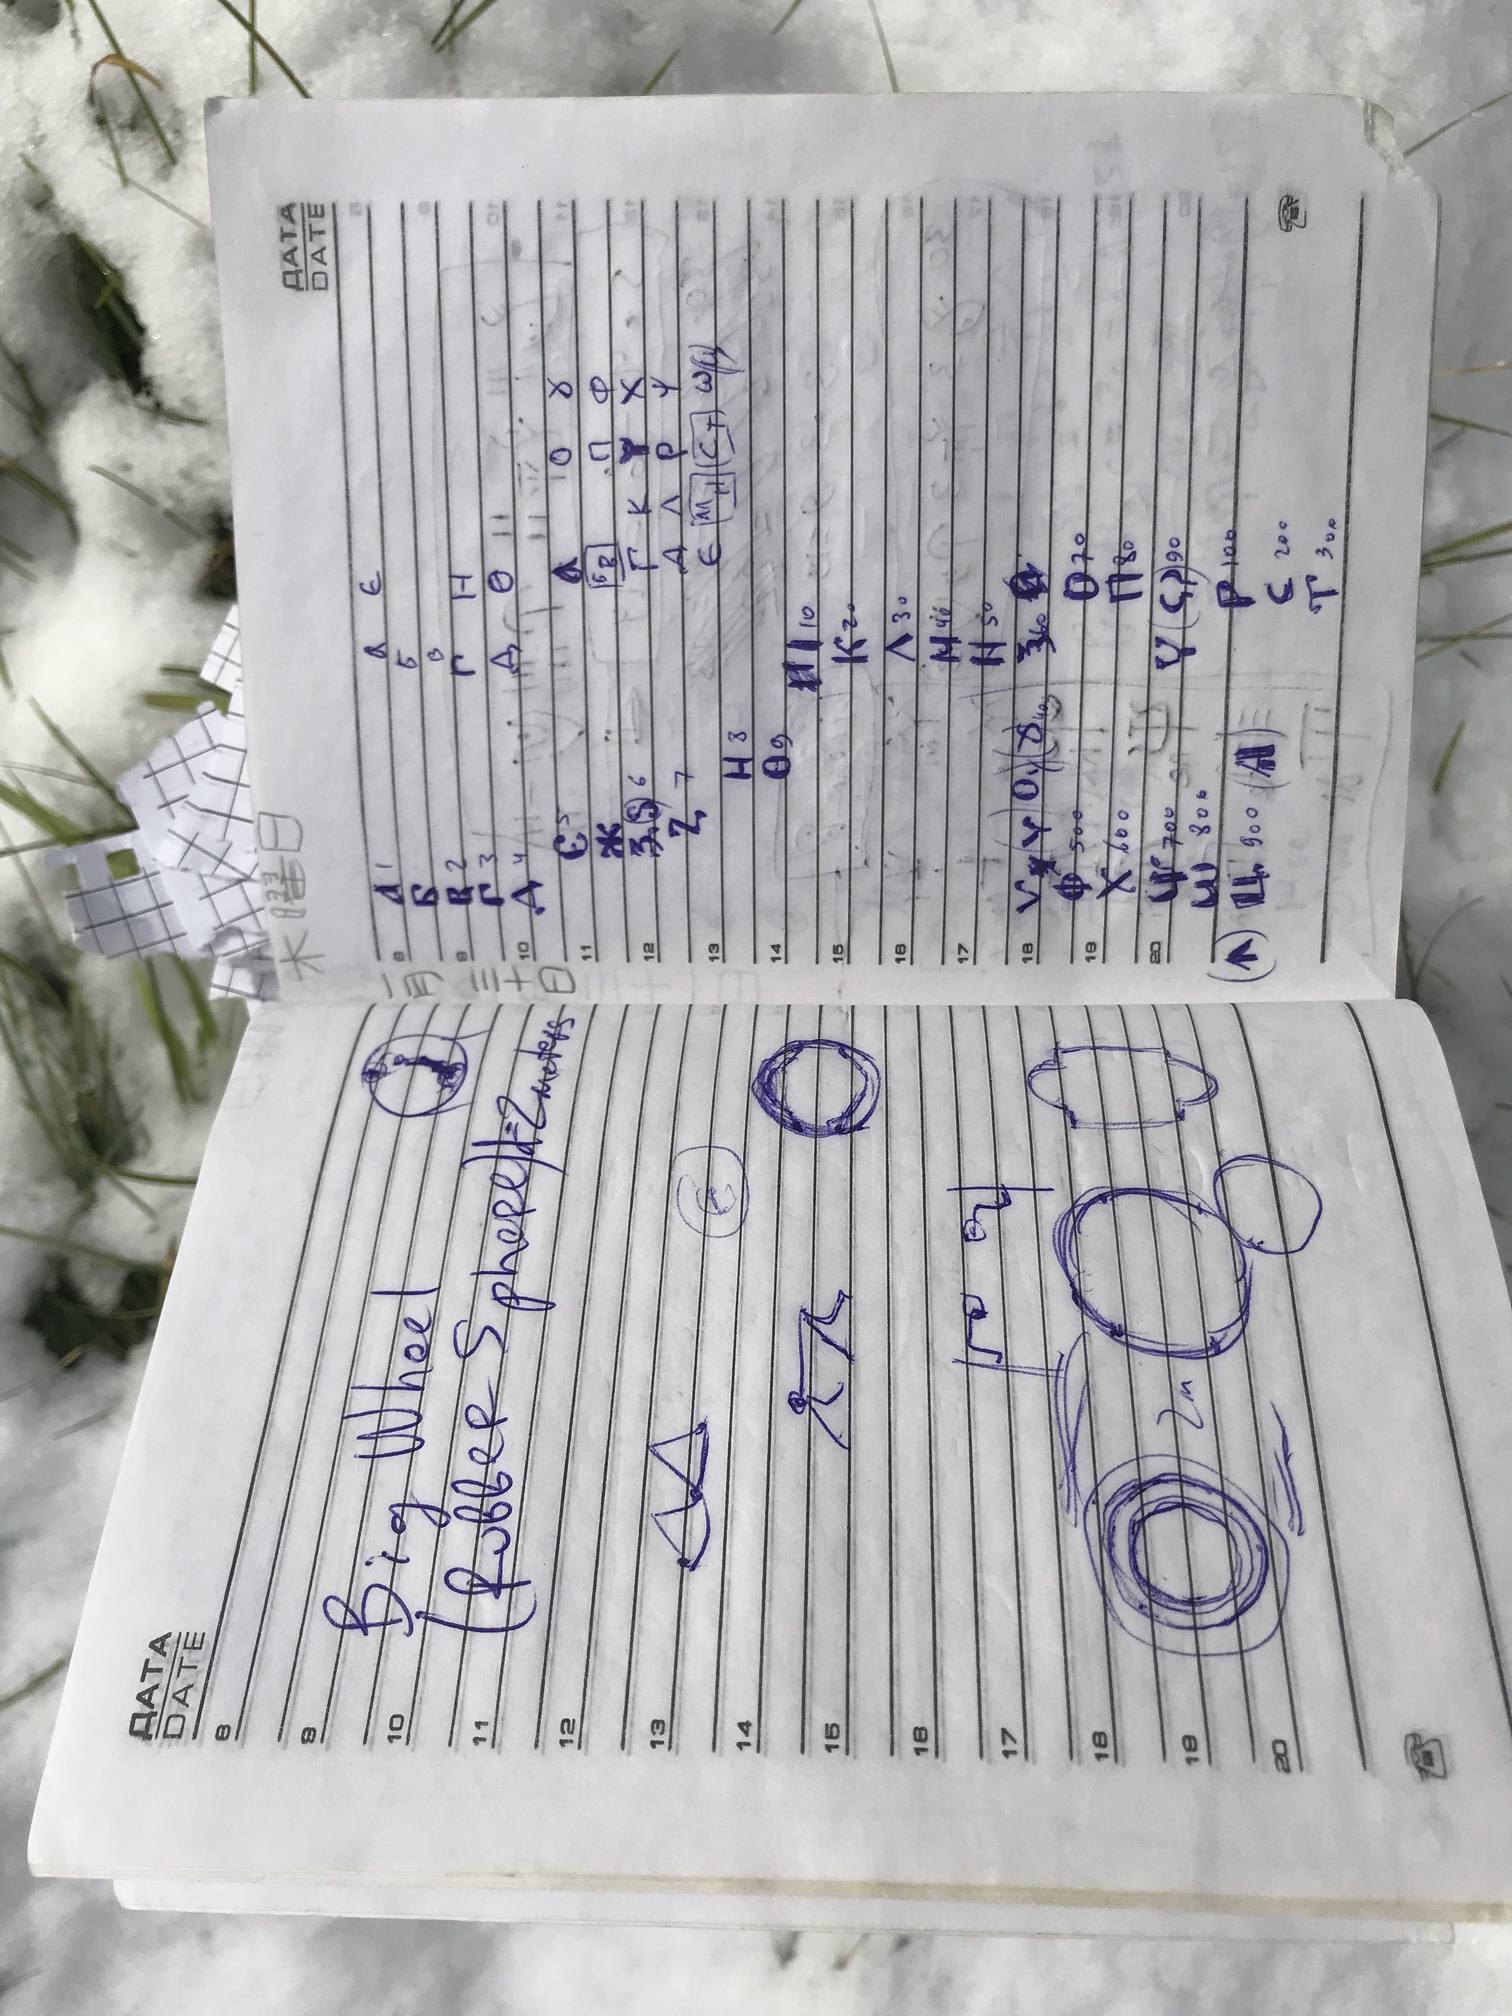 ДАТА
DATE
8
9
10
11
12
13
14
15
16
17
18
19
20
Big Wheel
(Rubber Sphere) d=2 meters
2m
ДАТА
DATE
木曜日
二月三十日
8
9
10
11
12
13
14
15
16
17
18
19
20
А 1
Б
В 2
Г 3
Д 4
Є 5
Ж
З,Ѕ 6
Z 7
Н 8
Ѳ 9
І 10
К 20
Л 30
М 40
Н 50
Ѯ 60
О 70
П 80
Ҁ 90
Р 100
С 200
Т 300
Ѵ У (Оу) (Ȣ) 400
Ф 500
Х 600
Ѱ 700
Ш 800
Ц 900
А Є
Б
В
Г Н
Д Ѳ
А О Ȣ
БВ П Ф
Г К Ч Х
Д Л Р Ѱ
Є МН СТ